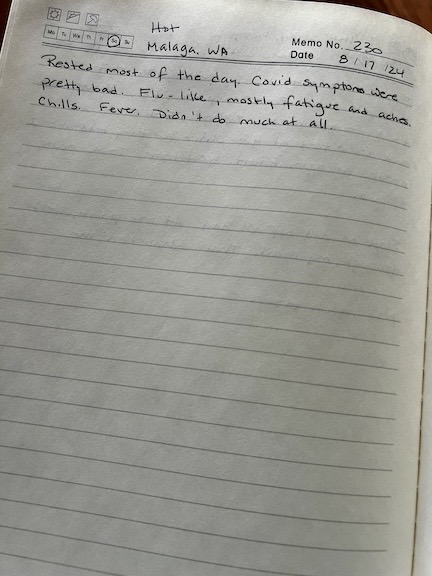 Hot
Mo Tu We Th Fr Sa Su
Malaga, WA
Memo No. 230
Date 8 / 17 / 24
Rested most of the day. Covid symptoms were
pretty bad. Flu-like, mostly fatigue and aches.
Chills. Fever. Didn't do much at all.